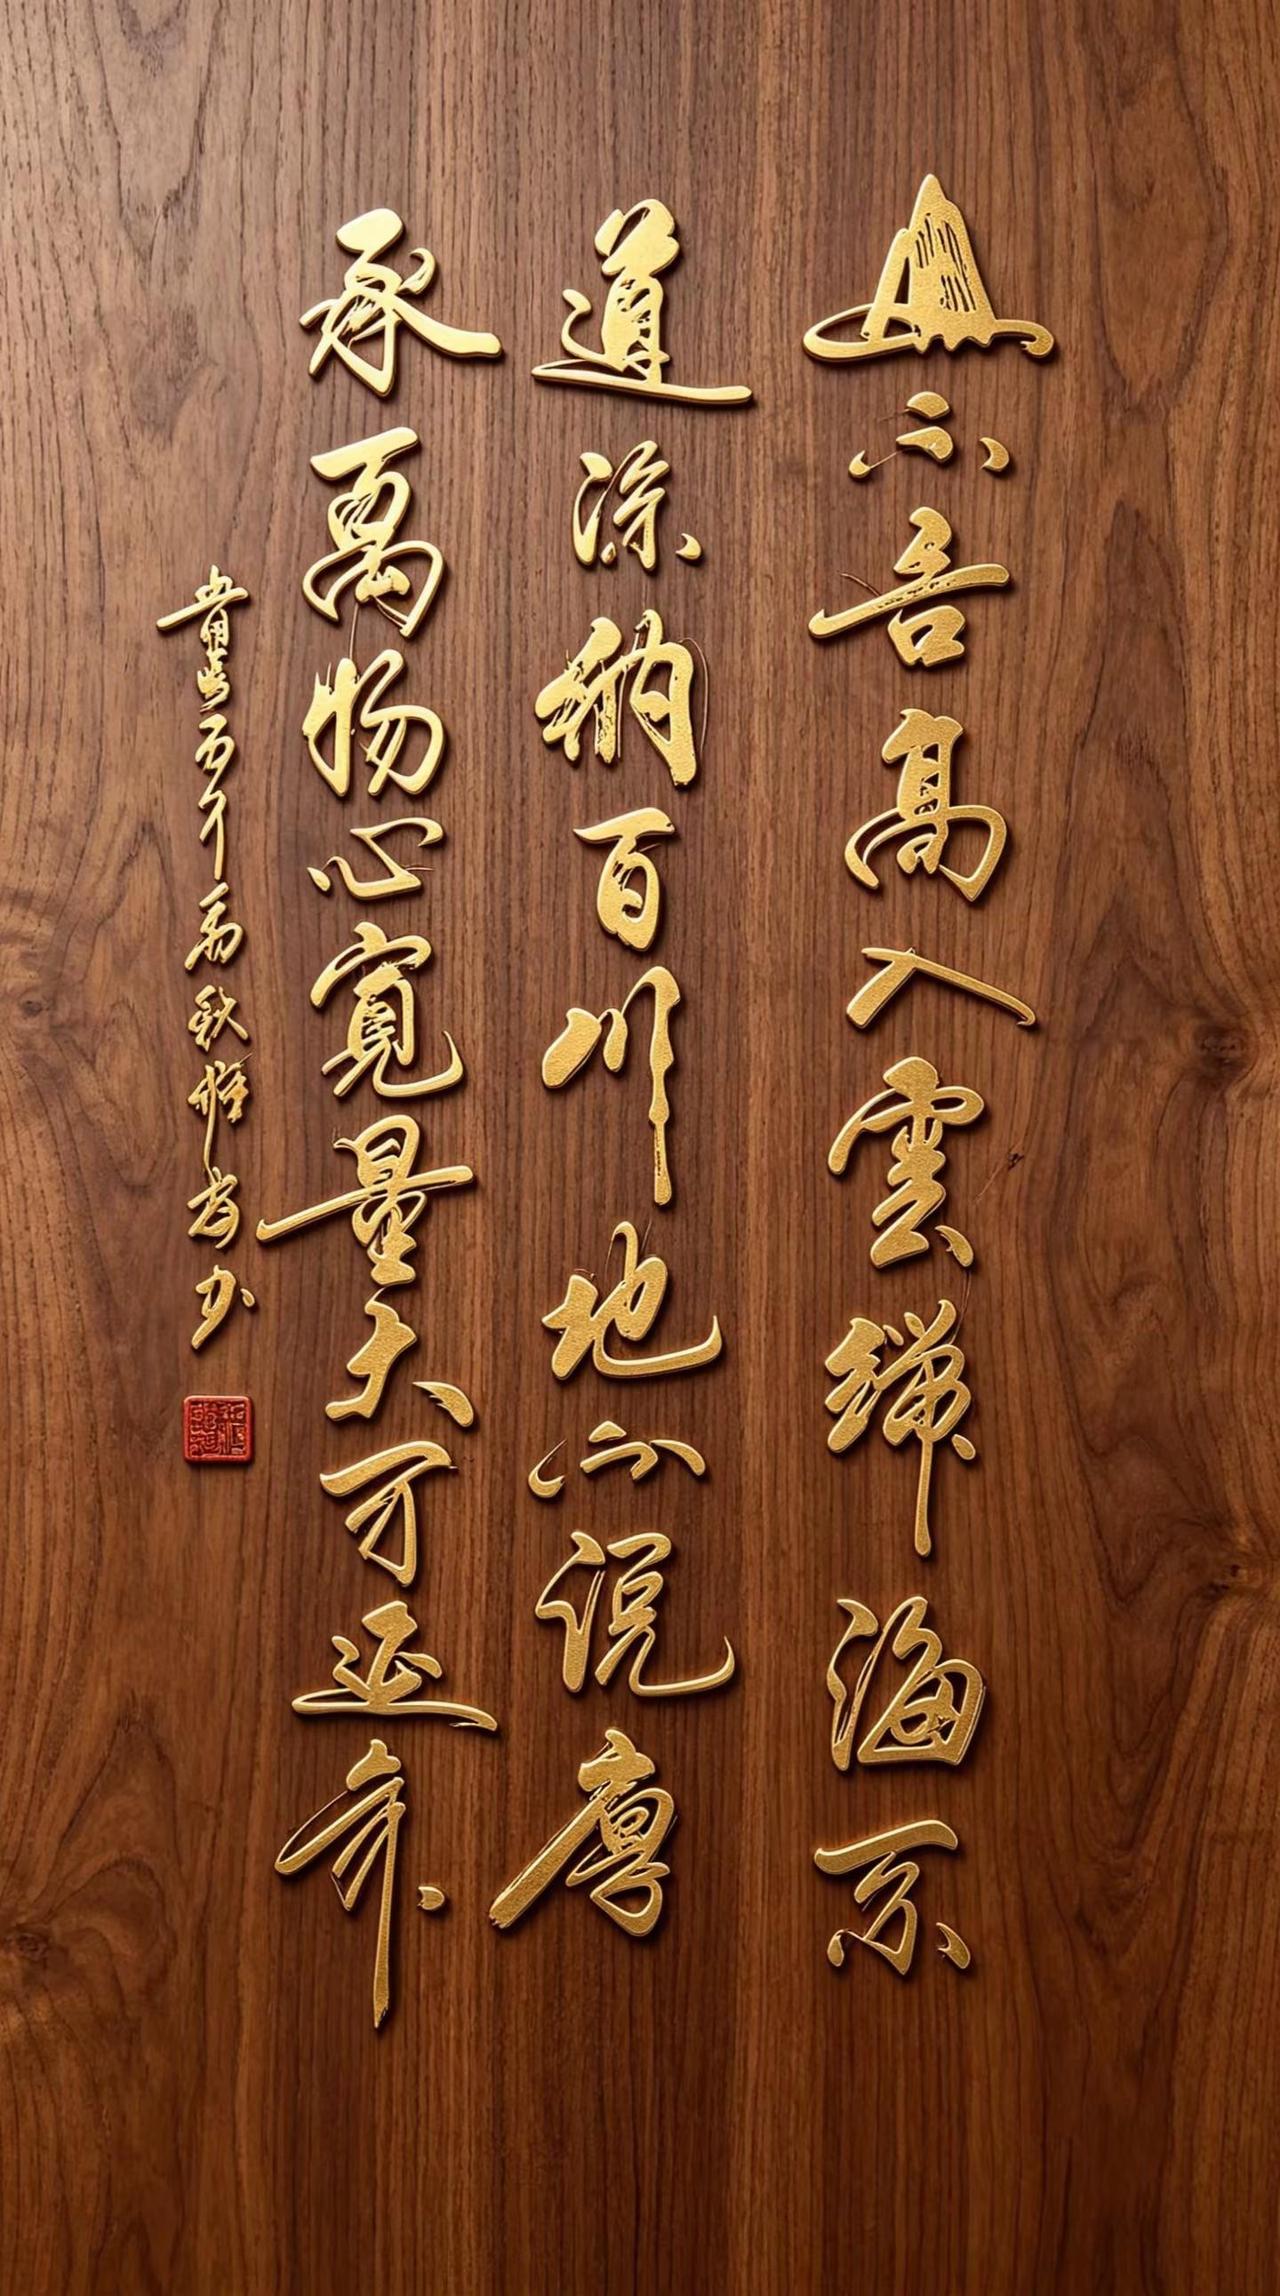 山不言高入雲端海不
道深納百川地不說厚
承萬物心寬量大可延年